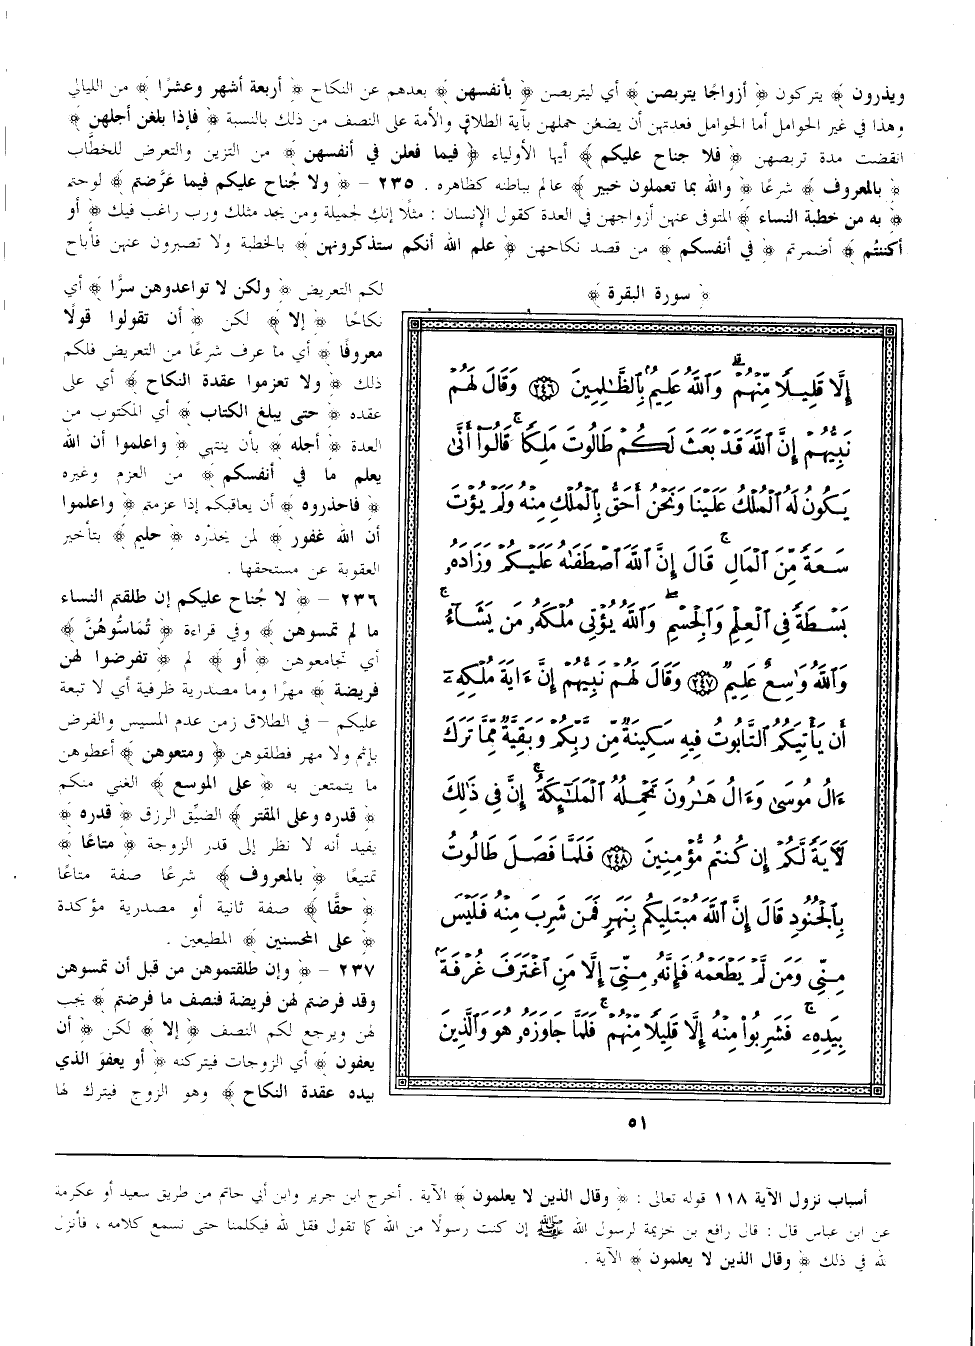 ويذرون ﴾ يتركون ﴿ أزواجًا يتربصن ﴾ أي ليتربصن ﴿ بأنفسهن ﴾ بعدهم عن النكاح ﴿ أربعة أشهر وعشرًا ﴾ من الليالي
وهذا في غير الحوامل أما الحوامل فعدتهن أن يضعن حملهن بآية الطلاق والأمة على النصف من ذلك بالنسبة ﴿ فإذا بلغن أجلهن ﴾
انقضت مدة تربصهن ﴿ فلا جناح عليكم ﴾ أيها الأولياء ﴿ فيما فعلن في أنفسهن ﴾ من التزين والتعرض للخطَّاب
﴿ بالمعروف ﴾ شرعًا ﴿ والله بما تعملون خبير ﴾ عالم بباطنه كظاهره . ٢٣٥ – ﴿ ولا جُناح عليكم فيما عَرَّضتم ﴾ لوحتم
﴿ به من خطبة النساء ﴾ المتوفى عنهن أزواجهن في العدة كقول الإنسان : مثلًا إنك لجميلة ومن يجد مثلك ورب راغب فيك ﴿ أو
أكننتُم ﴾ أضمرتم ﴿ في أنفسكم ﴾ من قصد نكاحهن ﴿ علم الله أنكم ستذكرونهن ﴾ بالخطبة ولا تصبرون عنهن فأباح
لكم التعريض ﴿ ولكن لا تواعدوهن سرًّا ﴾ أي
نكاحًا ﴿ إلا ﴾ لكن ﴿ أن تقولوا قولًا
معروفًا ﴾ أي ما عرف شرعًا من التعريض فلكم
ذلك ﴿ ولا تعزموا عقدة النكاح ﴾ أي على
عقده ﴿ حتى يبلغ الكتاب ﴾ أي المكتوب من
العدة ﴿ أجله ﴾ بأن ينتهي ﴿ واعلموا أن الله
يعلم ما في أنفسكم ﴾ من العزم وغيره
﴿ فاحذروه ﴾ أن يعاقبكم إذا عزمتم ﴿ واعلموا
أن الله غفور ﴾ لمن يحذره ﴿ حليم ﴾ بتأخير
العقوبة عن مستحقها .
٢٣٦ – ﴿ لا جُناح عليكم إن طلقتم النساء
ما لم تمسوهن ﴾ وفي قراءة ﴿ تُمَاسُّوهُنَّ ﴾
أي تجامعوهن ﴿ أو ﴾ لم ﴿ تفرضوا لهن
فريضة ﴾ مهرًا وما مصدرية ظرفية أي لا تبعة
عليكم – في الطلاق زمن عدم المسيس والفرض
بإثم ولا مهر فطلقوهن ﴿ ومتعوهن ﴾ أعطوهن
ما يتمتعن به ﴿ على الموسع ﴾ الغني منكم
﴿ قدره وعلى المقتر ﴾ الضيِّق الرزق ﴿ قدره ﴾
يفيد أنه لا نظر إلى قدر الزوجة ﴿ متاعًا ﴾
تمتيعًا ﴿ بالمعروف ﴾ شرعًا صفة متاعًا
﴿ حقًّا ﴾ صفة ثانية أو مصدرية مؤكدة
﴿ على المحسنين ﴾ المطيعين .
٢٣٧ – ﴿ وإن طلقتموهن من قبل أن تمسوهن
وقد فرضتم لهن فريضة فنصف ما فرضتم ﴾ يجب
لهن ويرجع لكم النصف ﴿ إلا ﴾ لكن ﴿ أن
يعفون ﴾ أي الزوجات فيتركنه ﴿ أو يعفوَ الذي
بيده عقدة النكاح ﴾ وهو الزوج فيترك لها
﴿ سورة البقرة ﴾
إِلَّا قَلِيلًا مِّنْهُمْ ۗ وَٱللَّهُ عَلِيمٌۢ بِٱلظَّٰلِمِينَ ﴿٢٤٦﴾ وَقَالَ لَهُمْ
نَبِيُّهُمْ إِنَّ ٱللَّهَ قَدْ بَعَثَ لَكُمْ طَالُوتَ مَلِكًا ۚ قَالُوٓا۟ أَنَّىٰ
يَكُونُ لَهُ ٱلْمُلْكُ عَلَيْنَا وَنَحْنُ أَحَقُّ بِٱلْمُلْكِ مِنْهُ وَلَمْ يُؤْتَ
سَعَةً مِّنَ ٱلْمَالِ ۚ قَالَ إِنَّ ٱللَّهَ ٱصْطَفَىٰهُ عَلَيْكُمْ وَزَادَهُۥ
بَسْطَةً فِى ٱلْعِلْمِ وَٱلْجِسْمِ ۖ وَٱللَّهُ يُؤْتِى مُلْكَهُۥ مَن يَشَآءُ ۚ
وَٱللَّهُ وَٰسِعٌ عَلِيمٌ ﴿٢٤٧﴾ وَقَالَ لَهُمْ نَبِيُّهُمْ إِنَّ ءَايَةَ مُلْكِهِۦٓ
أَن يَأْتِيَكُمُ ٱلتَّابُوتُ فِيهِ سَكِينَةٌ مِّن رَّبِّكُمْ وَبَقِيَّةٌ مِّمَّا تَرَكَ
ءَالُ مُوسَىٰ وَءَالُ هَٰرُونَ تَحْمِلُهُ ٱلْمَلَٰٓئِكَةُ ۚ إِنَّ فِى ذَٰلِكَ
لَءَايَةً لَّكُمْ إِن كُنتُم مُّؤْمِنِينَ ﴿٢٤٨﴾ فَلَمَّا فَصَلَ طَالُوتُ
بِٱلْجُنُودِ قَالَ إِنَّ ٱللَّهَ مُبْتَلِيكُم بِنَهَرٍ فَمَن شَرِبَ مِنْهُ فَلَيْسَ
مِنِّى وَمَن لَّمْ يَطْعَمْهُ فَإِنَّهُۥ مِنِّىٓ إِلَّا مَنِ ٱغْتَرَفَ غُرْفَةًۢ
بِيَدِهِۦ ۚ فَشَرِبُوا۟ مِنْهُ إِلَّا قَلِيلًا مِّنْهُمْ ۚ فَلَمَّا جَاوَزَهُۥ هُوَ وَٱلَّذِينَ
٥١
أسباب نزول الآية ١١٨ قوله تعالى : ﴿ وقال الذين لا يعلمون ﴾ الآية . أخرج ابن جرير وابن أبي حاتم من طريق سعيد أو عكرمة
عن ابن عباس قال : قال رافع بن خزيمة لرسول الله ﷺ إن كنت رسولًا من الله كما تقول فقل لله فيكلمنا حتى نسمع كلامه ، فأنزل
لله في ذلك ﴿ وقال الذين لا يعلمون ﴾ الآية .